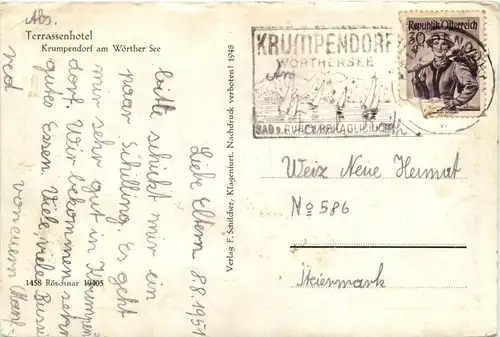 Abs.
Terrassenhotel
Krumpendorf am Wörther See
Liebe Eltern 8.8.1951
bitte schickt mir ein
paar Schilling. Es geht
mir sehr gut in Krumpen
dorf. Wir bekommen sehr
gutes Essen. Viele viele Bussi
von euerm
1458 Röschnar 19405
Verlag F. Schilcher, Klagenfurt. Nachdruck verboten! 1948
KRUMPENDORF
WÖRTHERSEE
An
Republik Österreich
30
Weiz Neue Heimat
No 586
Steiermark